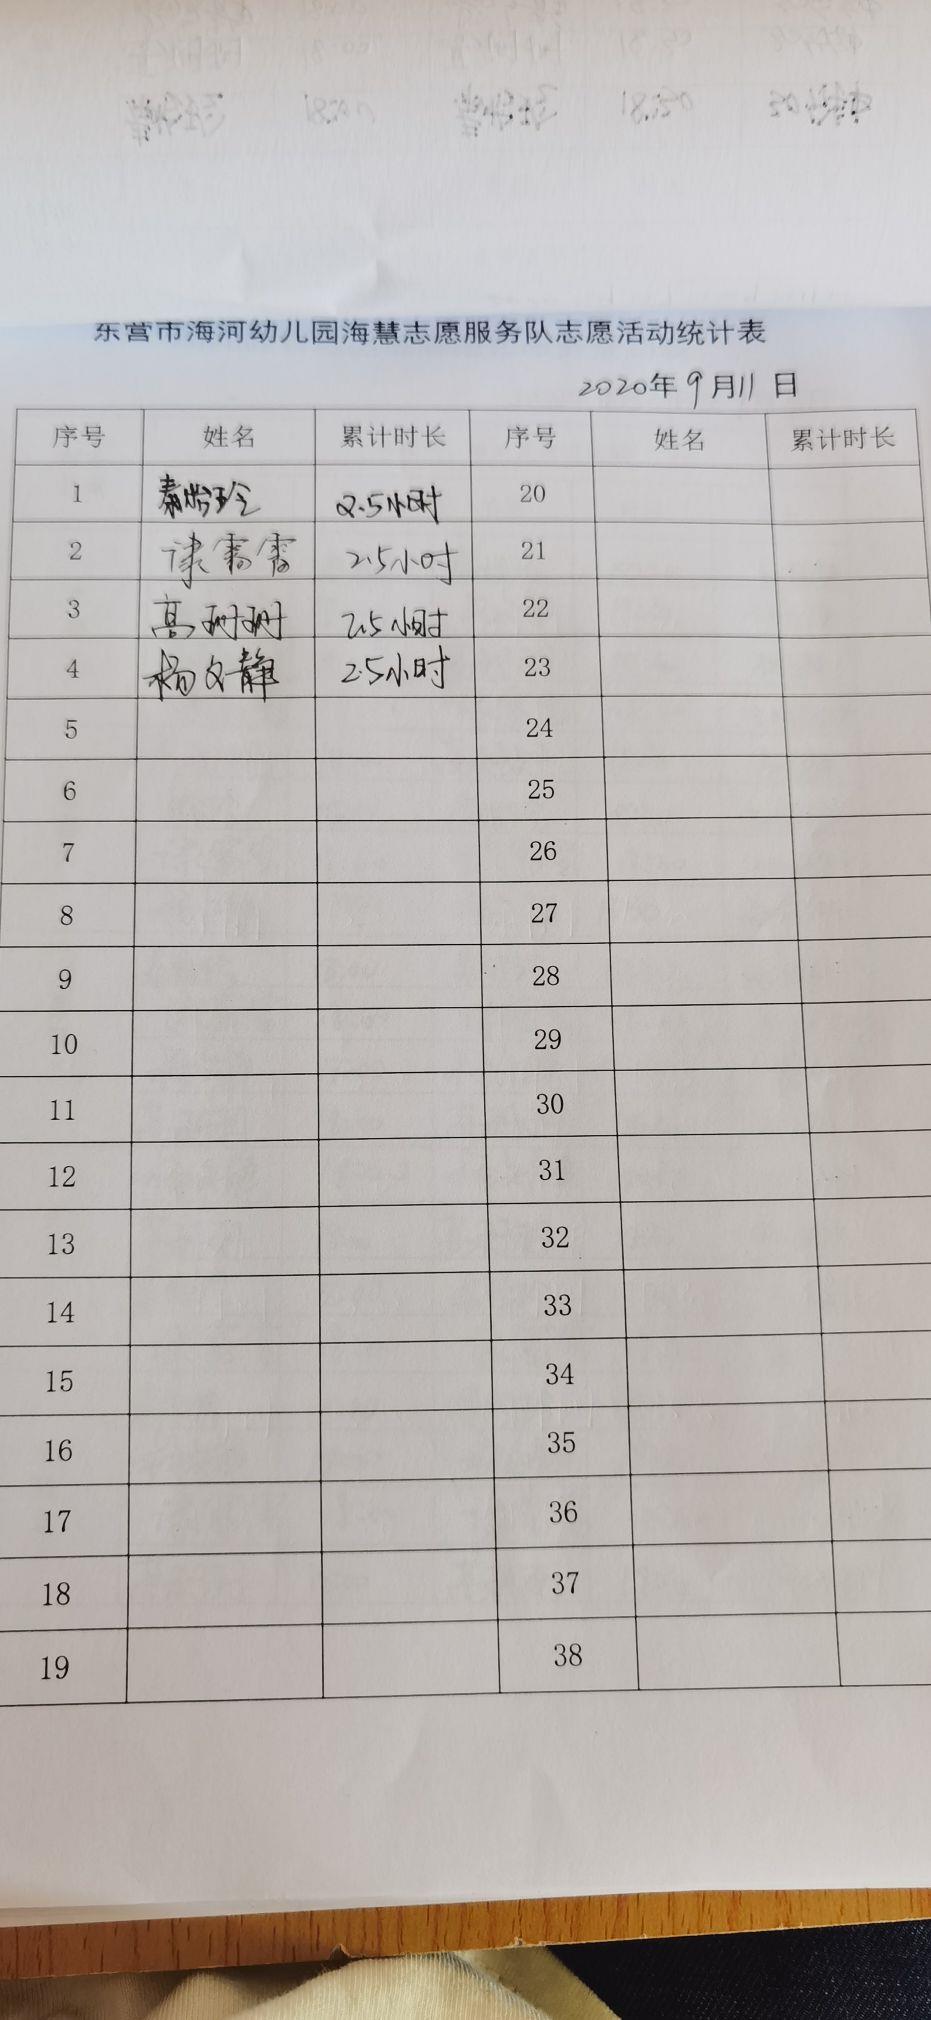 东营市海河幼儿园海慧志愿服务队志愿活动统计表
2020年9月11日
序号 姓名 累计时长 序号 姓名 累计时长
1 秦怡玲 2.5小时 20
2 2.5小时 21
3 高珊珊 2.5小时 22
4 杨文静 2.5小时 23
5 24
6 25
7 26
8 27
9 28
10 29
11 30
12 31
13 32
14 33
15 34
16 35
17 36
18 37
19 38